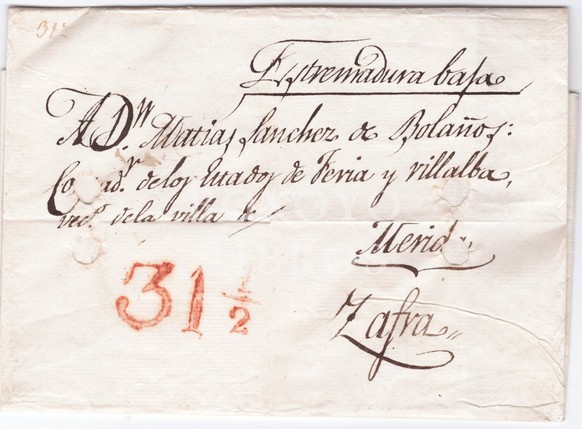 31
Estremadura baja
A Dn. Matias Sanchez de Bolaños:
de los Estados de Feria y Villalba,
vecº. de la villa de
Merid
Zafra
31 1/2